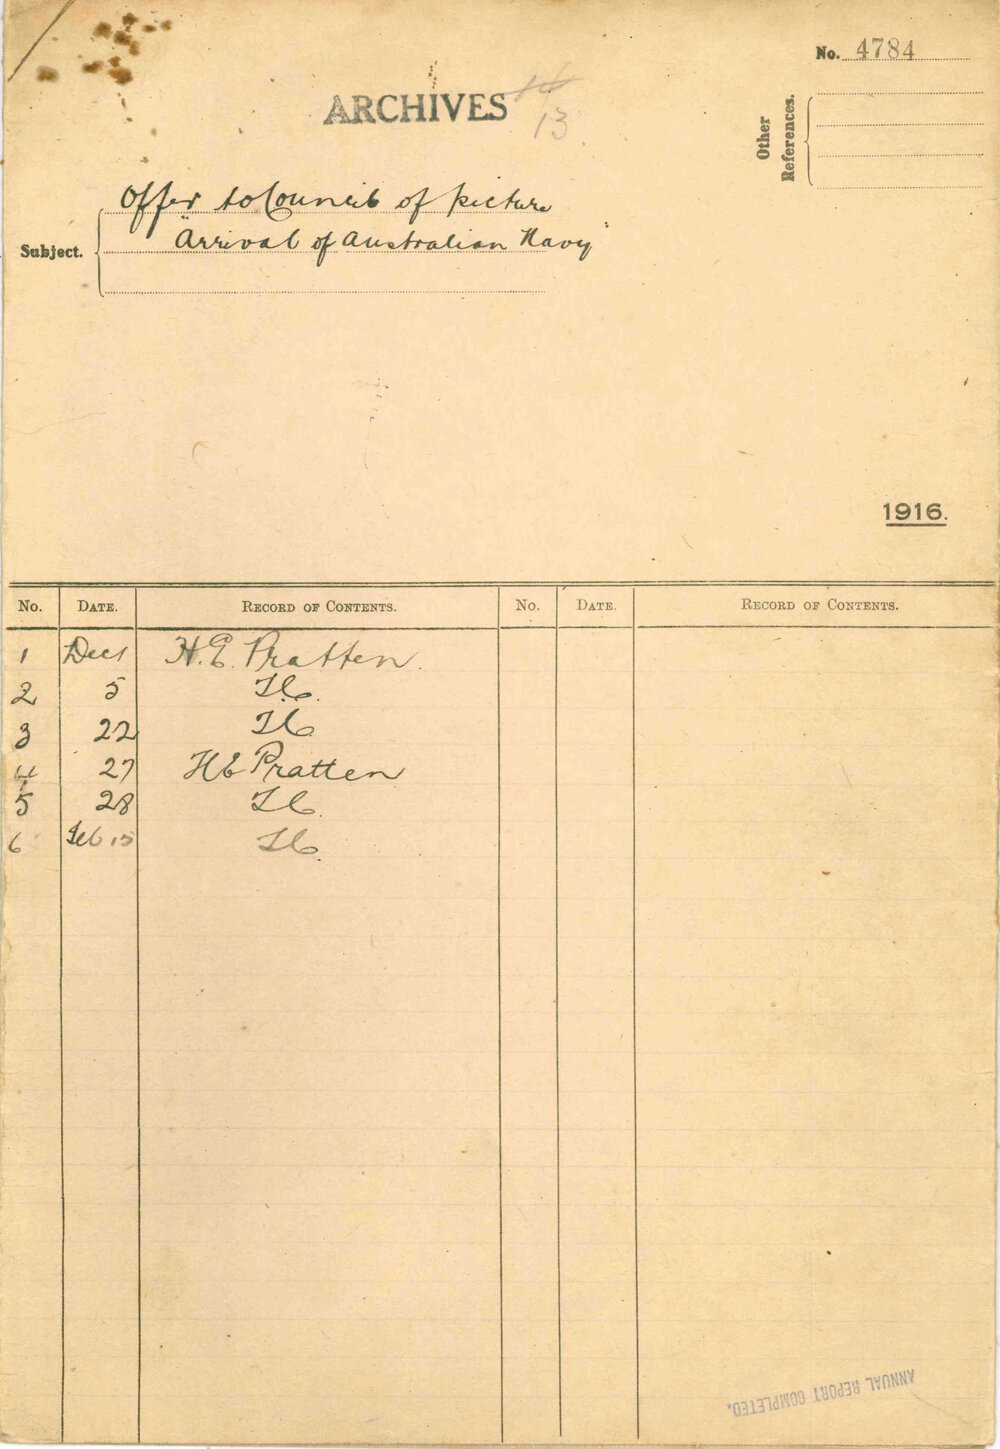 No. 4784
ARCHIVES
14
13
Other References.
Subject.
Offer to Council of picture
"Arrival of Australian Navy"
1916.
No. DATE. RECORD OF CONTENTS. No. DATE. RECORD OF CONTENTS.
1 Dec 1 H.E. Pratten.
2 5
3 22
4 27 HE Pratten
5 28
6 Feb 15
ANNUAL REPORT COMPLETED.